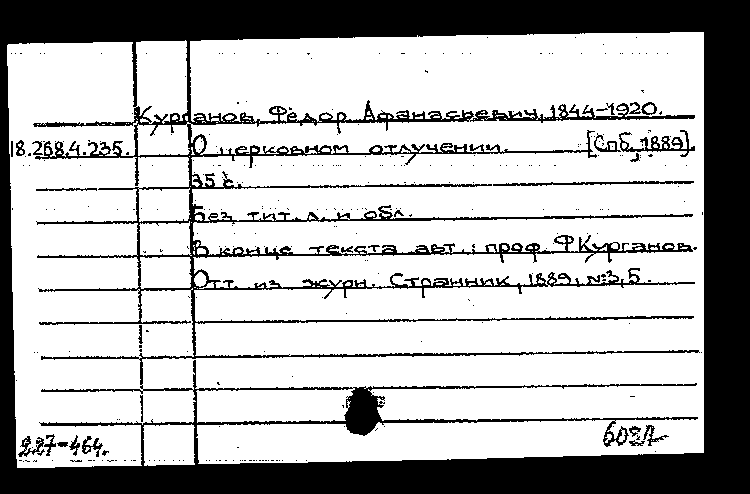 Курганов, Фёдор Афанасьевич, 1844-1920.
18.268.4.235. О церковном отлучении. [Спб, 1889].
35 с.
Без тит. л. и обл.
В конце текста авт.: проф. Ф Курганов.
Отт. из журн. Странник, 1889, №3, 5.
227-464.